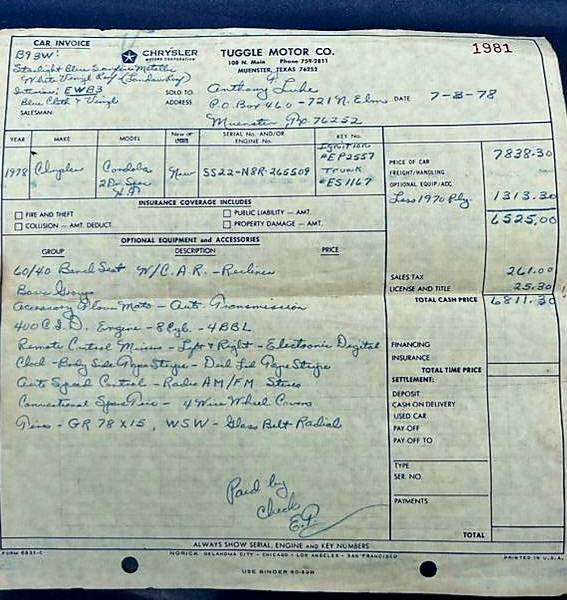 CAR INVOICE
B93W:
Starlight Blue Sunfire Metallic
White Vinyl Roof (Landau)
Interior: EWB3
Blue Cloth & Vinyl
SALESMAN:
CHRYSLER
MOTORS CORPORATION
TUGGLE MOTOR CO.
108 N. Main Phone 759-2811
MUENSTER, TEXAS 76252
1981
SOLD TO: Anthony G. Luke
ADDRESS P.O. Box 460 - 721 N. Elm DATE 7-3-78
Muenster 76252
YEAR MAKE MODEL New or Used SERIAL No. AND/OR ENGINE No. KEY No.
1978 Chrysler Cordoba New SS22-N8R-265509
2 Dr.
Ignition
#EP2557
Trunk
#ES1167
PRICE OF CAR 7838.30
FREIGHT/HANDLING
OPTIONAL EQUIP/ACC. 1313.30
Less 1970 Ply.
6525.00
INSURANCE COVERAGE INCLUDES
FIRE AND THEFT PUBLIC LIABILITY — AMT.
COLLISION — AMT. DEDUCT. PROPERTY DAMAGE — AMT.
OPTIONAL EQUIPMENT and ACCESSORIES
GROUP DESCRIPTION PRICE
60/40 Bench Seat W/C.A.R. - Recliner
Basic Group
Accessory Floor Mats - Auto Transmission
400 C.I.D. Engine - 8 Cyl. - 4 BBL
Remote Control Mirrors - Left & Right - Electronic Digital
Clock - Body Side Tape Stripe - Deck Lid Tape Stripe
Auto Speed Control - Radio AM/FM Stereo
Conventional Spare Tire - 4 Wire Wheel Covers
Tires - GR78X15, WSW - Glass Belt Radial
Paid by
Check
SALES TAX 261.00
LICENSE AND TITLE 25.30
TOTAL CASH PRICE 6811.30
FINANCING
INSURANCE
TOTAL TIME PRICE
SETTLEMENT:
DEPOSIT
CASH ON DELIVERY
USED CAR
PAY OFF
PAY OFF TO
TYPE
SER. NO.
PAYMENTS
TOTAL
ALWAYS SHOW SERIAL, ENGINE AND KEY NUMBERS
FORM 6831-C NORICK OKLAHOMA CITY - CHICAGO - LOS ANGELES - SAN FRANCISCO PRINTED IN U.S.A.
USE BINDER